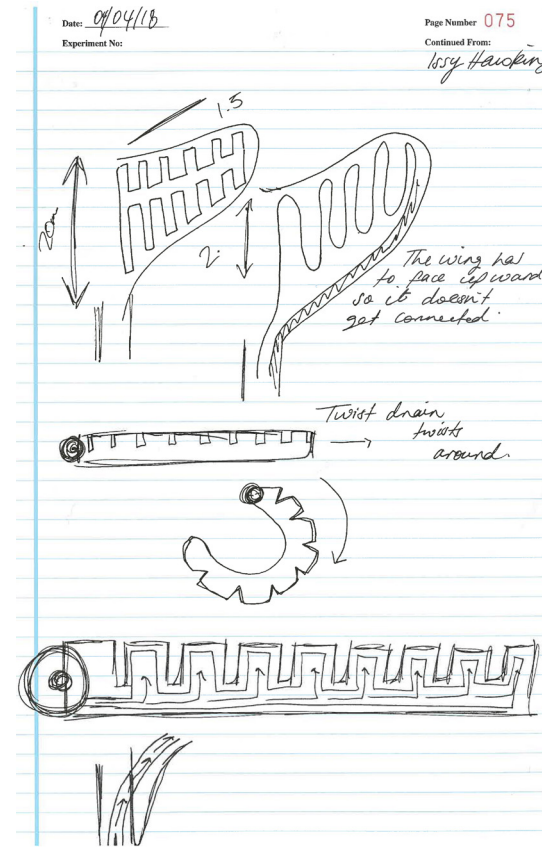 Date: 09/04/18
Page Number 075
Experiment No:
Continued From:
Issy Hawkin
1.5
2.
The wing has
to face upward
so it doesn't
get connected.
Twist drain
twists
around.